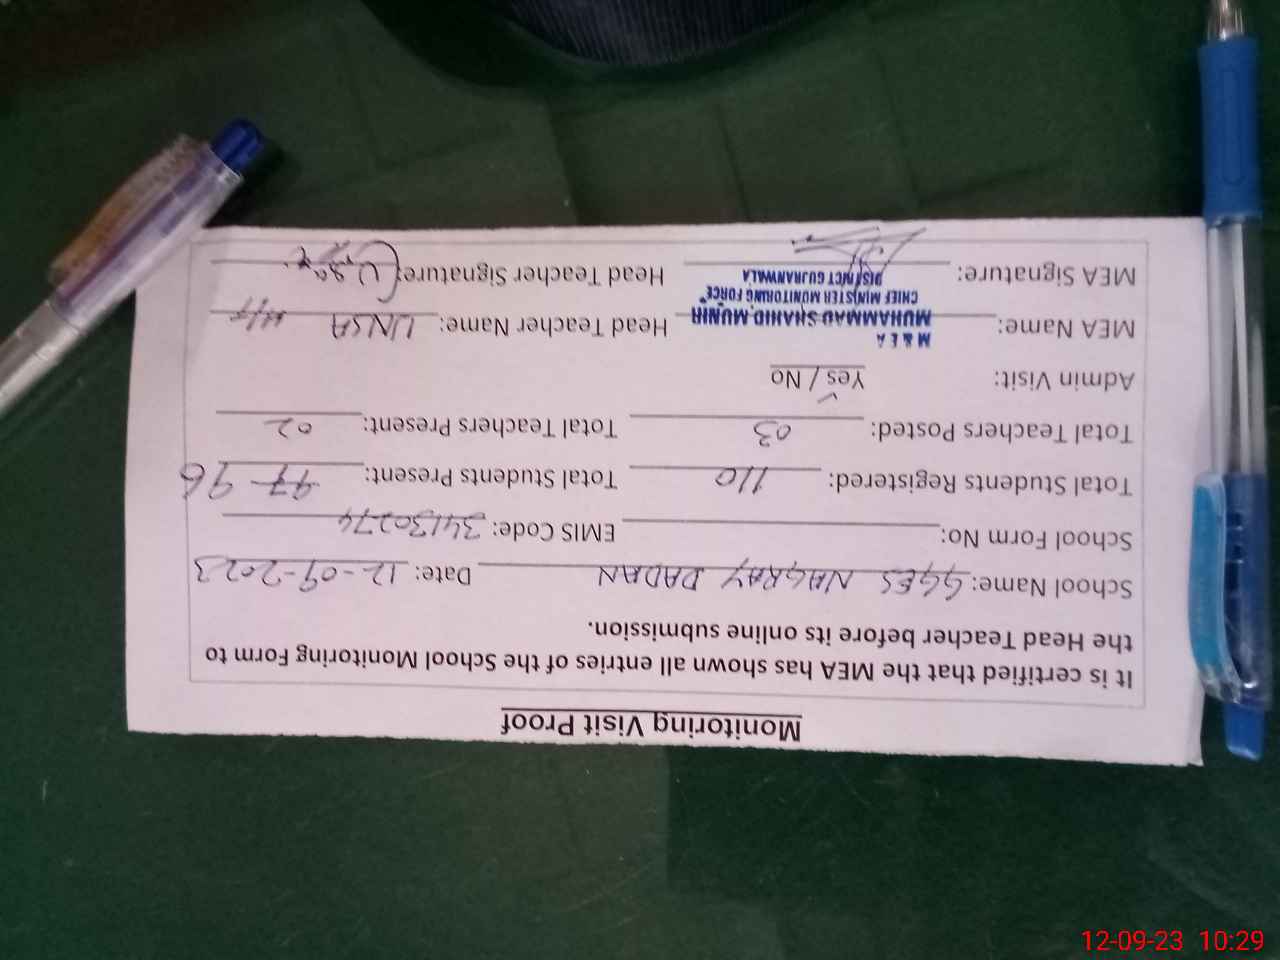 Monitoring Visit Proof
It is certified that the MEA has shown all entries of the School Monitoring Form to
the Head Teacher before its online submission.
School Name: GGES NAGRAY DADAN Date: 12-09-2023
School Form No: EMIS Code: 34130274
Total Students Registered: 110 Total Students Present: 97 96
Total Teachers Posted: 03 Total Teachers Present: 02
Admin Visit: Yes / No
M & E A
MEA Name: MUHAMMAD SHAHID MUNIR Head Teacher Name: UNSA H/T
CHIEF MINISTER MONITORING FORCE
DISTRICT GUJRANWALA
MEA Signature: Head Teacher Signature:
12-09-23 10:29